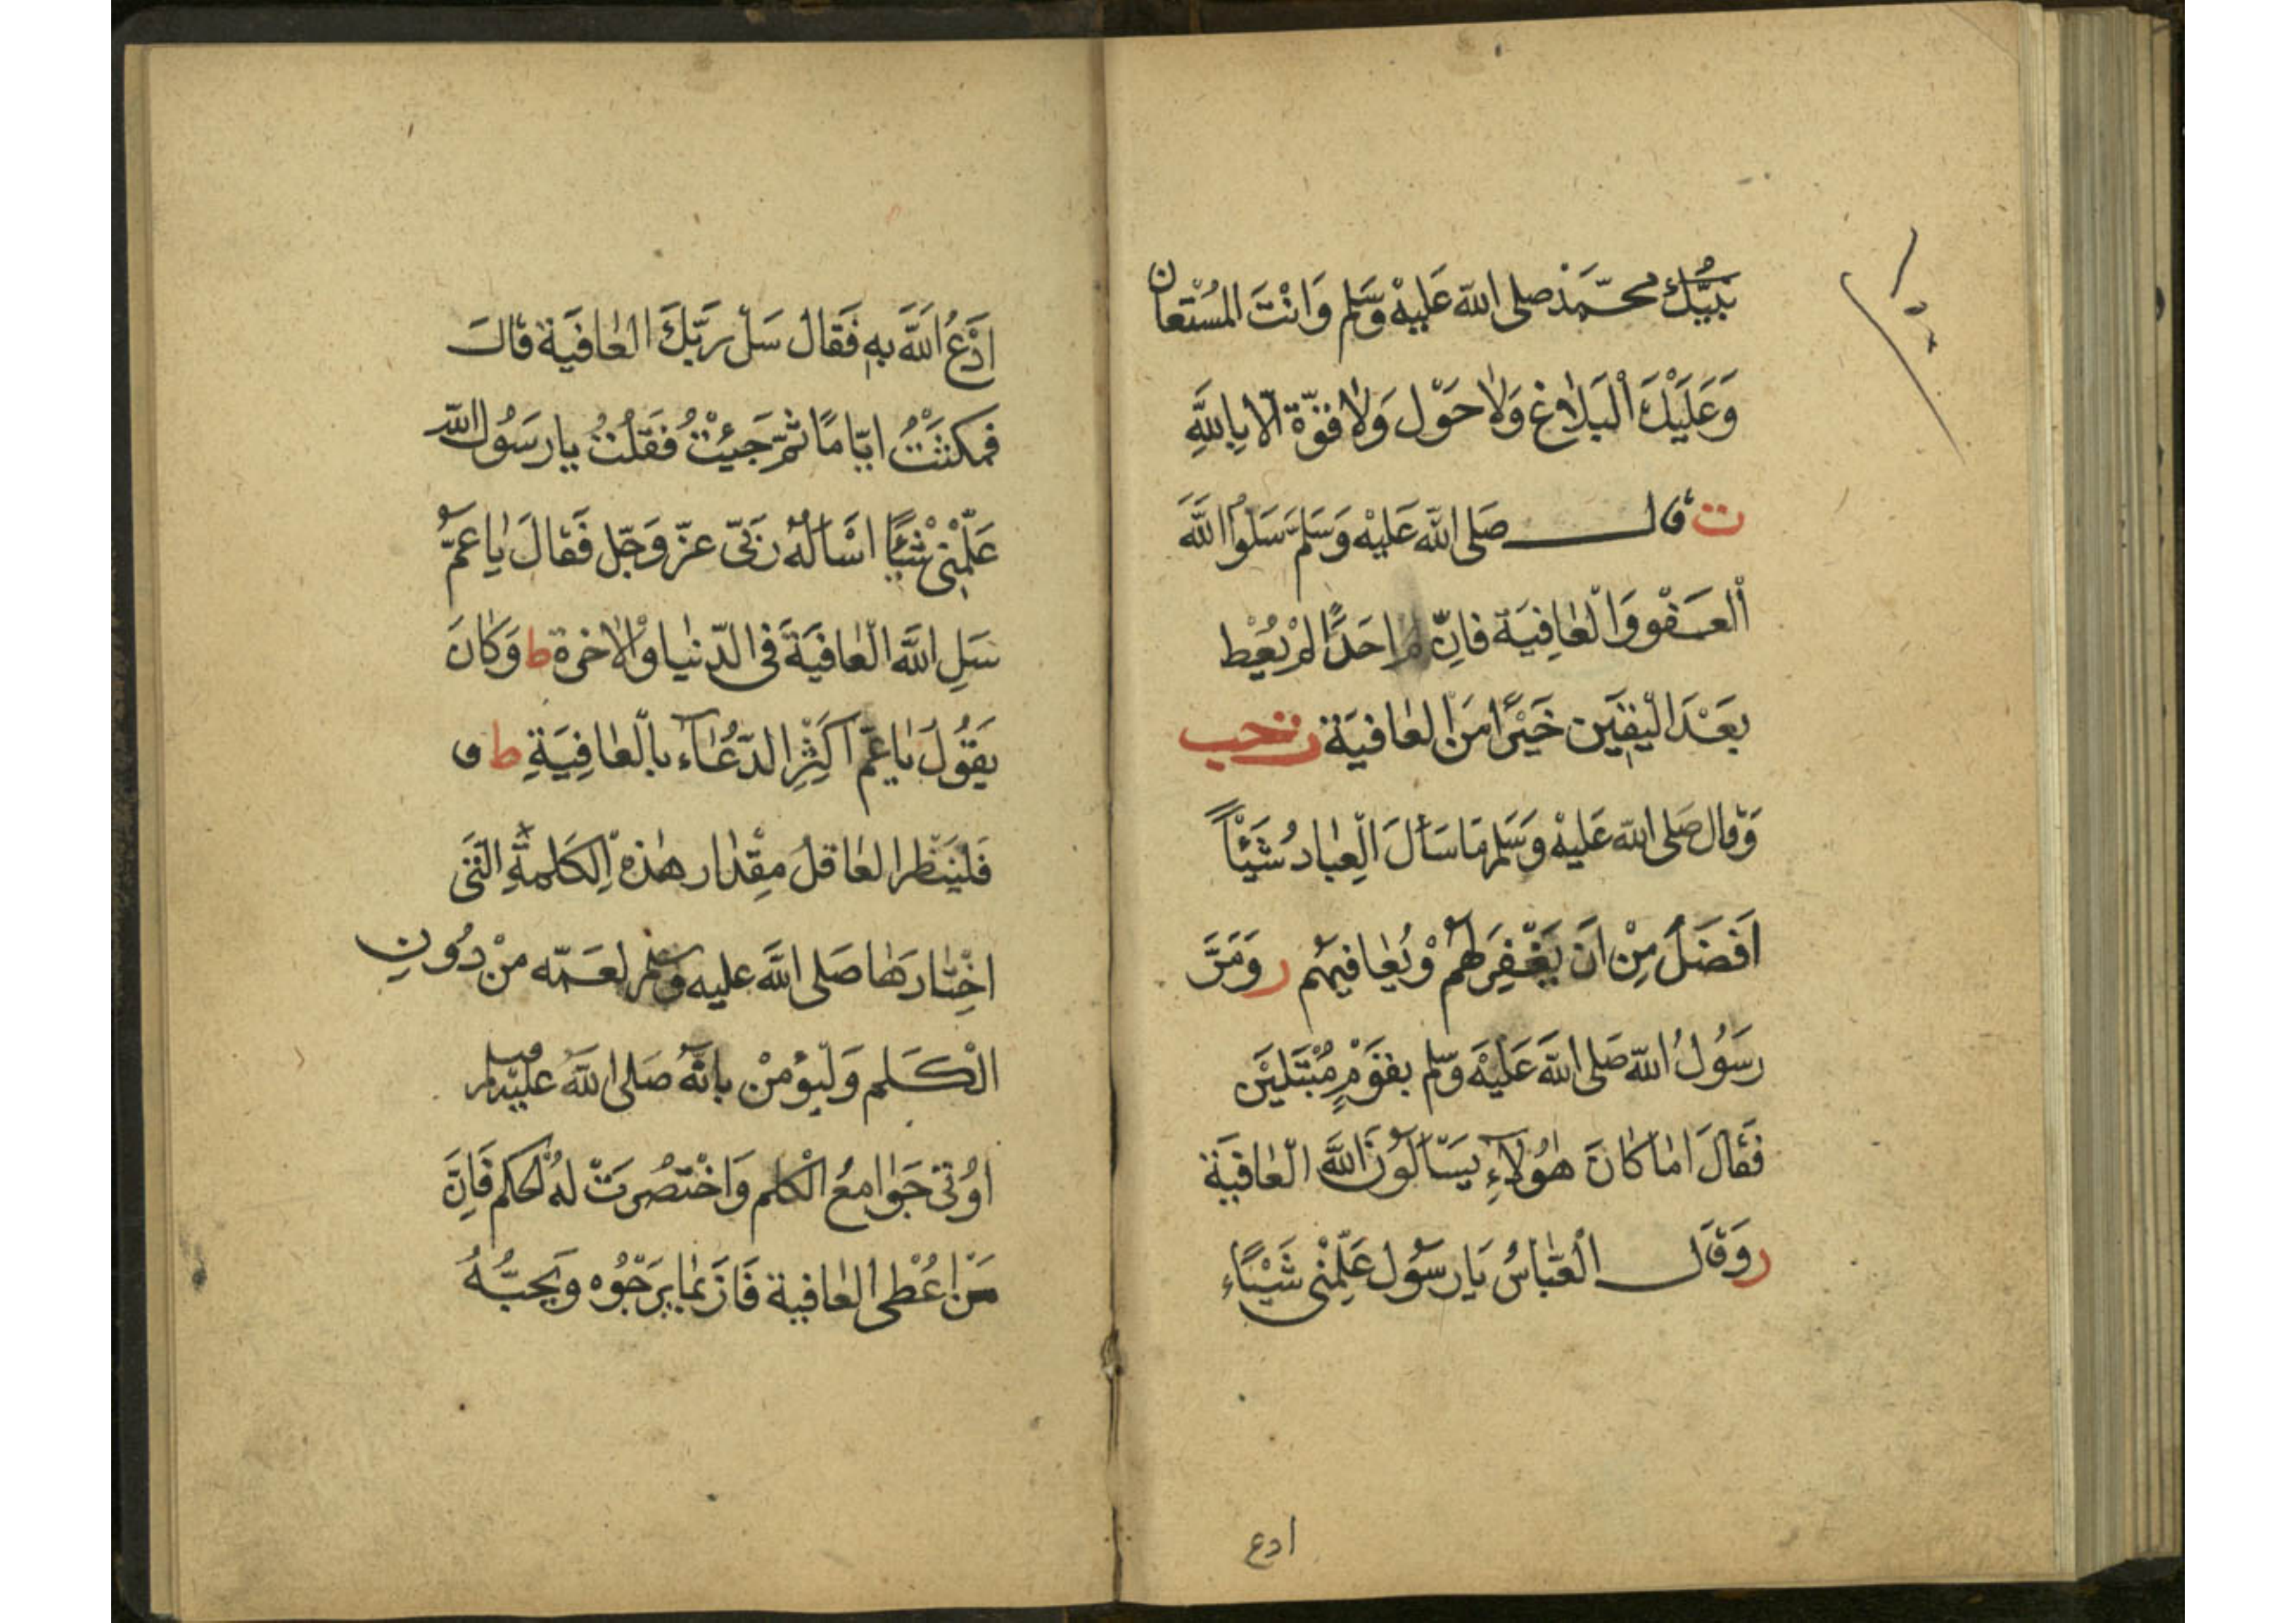 نبيّك محمّد صلى الله عليه وسلم وانت المستعان
وعليك البلاغ ولا حول ولا قوّة الّا بالله
ت قال صلى الله عليه وسلم سلوا الله
العفو والعافية فانّ احدًا لم يعط
بعد اليقين خيرًا من العافية ت حب
وقال صلى الله عليه وسلم ما سأل العباد شيئًا
افضل من ان يغفر لهم ويعافيهم ر ومرّ
رسول الله صلى الله عليه وسلم بقوم مبتلين
فقال اما كان هؤلاء يسألون الله العافية
ر وقال العباس يا رسول علّمني شيئاء
ادع
ادع الله به فقال سل ربّك العافية قال
فمكثت ايّامًا ثمّ جيئت فقلت يا رسول الله
علّمني شيئًا اسأله ربّي عزّ وجلّ فقال يا عمّ
سل الله العافية في الدّنيا والاخرة ط وكان
يقول يا عمّ اكثر الدّعاء بالعافية ط و
فلينظر العاقل مقدار هذه الكلمة التي
اختارها صلى الله عليه وسلم لعمّه من دون
الكلم وليؤمن بانّه صلى الله عليه وسلم
اوتي جوامع الكلم واختصرت له الحكم فانّ
من اعطي العافية فاز بما يرجوه ويحبّه